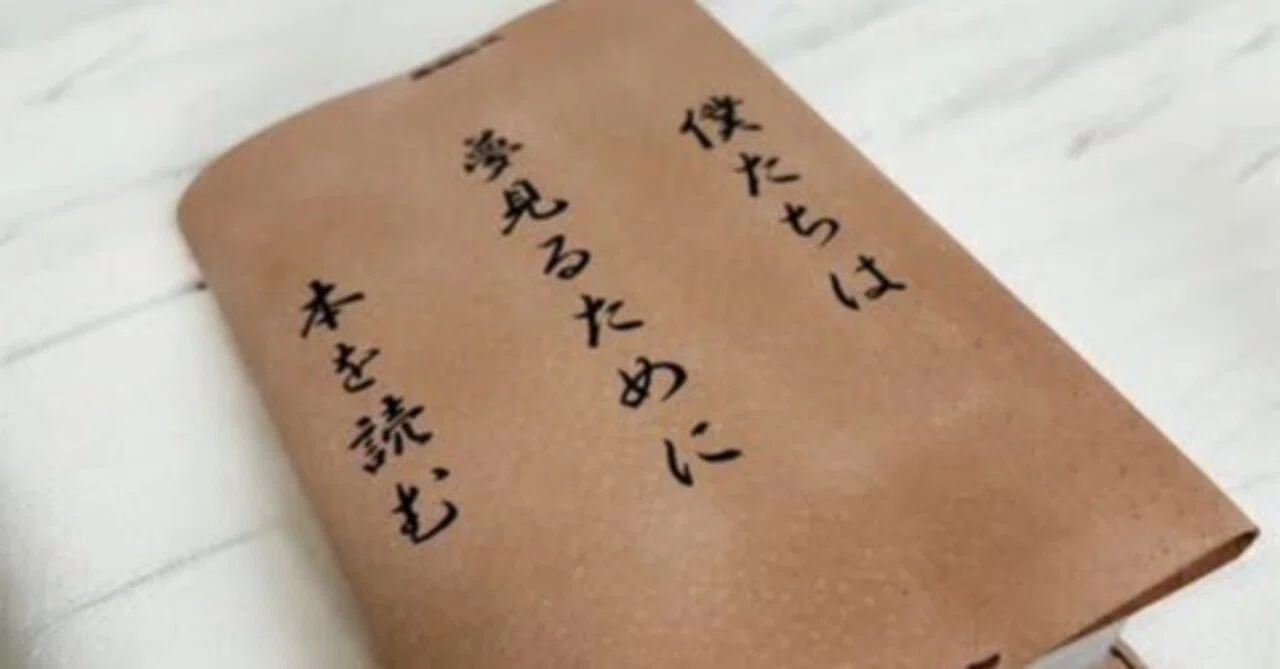 僕たちは
夢見るために
本を読む